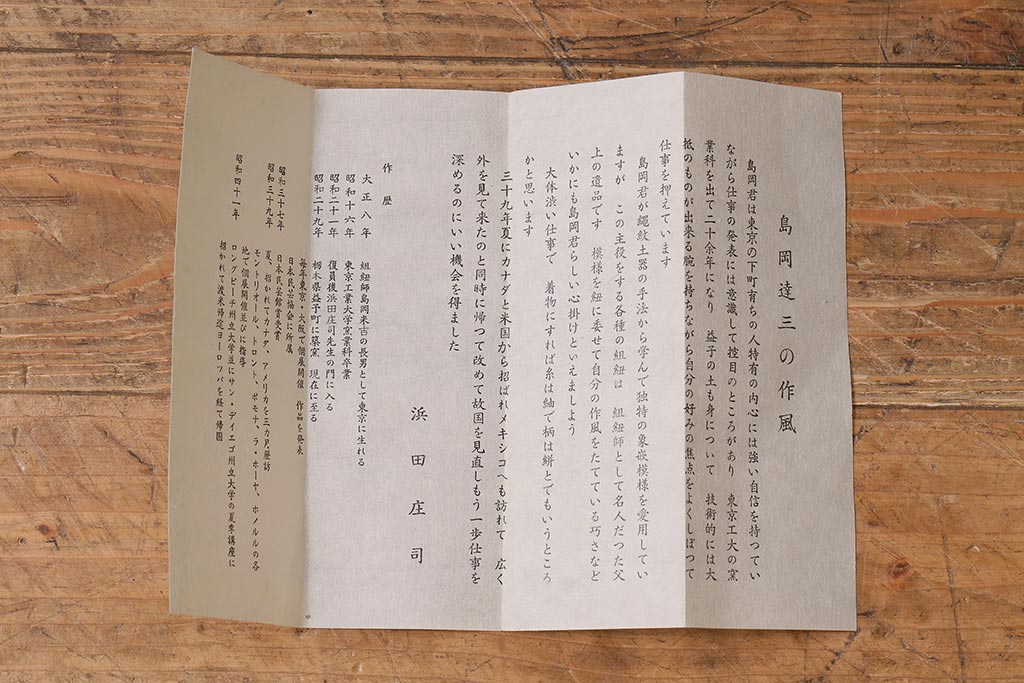 島岡達三の作風
島岡君は東京の下町育ちの人特有の内心には強い自信を持つてい
ながら仕事の発表には意識して控目のところがあり　東京工大の窯
業科を出て二十余年になり　益子の土も身について　技術的には大
抵のものが出来る腕を持ちながら自分の好みの焦点をよくしぼつて
仕事を押えています
島岡君が縄紋土器の手法から学んで独特の象嵌模様を愛用してい
ますが　この主役をする各種の組紐は　組紐師として名人だつた父
上の遺品です　模様を紐に委せて自分の作風をたてている巧さなど
いかにも島岡君らしい心掛けといえましよう
大体渋い仕事で　着物にすれば糸は紬で柄は絣とでもいうところ
かと思います
三十九年夏にカナダと米国から招ばれメキシコへも訪れて　広く
外を見て来たのと同時に帰つて改めて故国を見直しもう一歩仕事を
深めるのにいい機会を得ました
浜田庄司
作歴
大正八年　組紐師島岡米吉の長男として東京に生れる
昭和十六年　東京工業大学窯業科卒業
昭和二十一年　復員後浜田庄司先生の門に入る
昭和二十九年　栃木県益子町に築窯　現在に至る
毎年東京・大阪で個展開催　作品を発表
日本民芸協会に所属
昭和三十七年　日本民芸館賞受賞
昭和三十九年　夏、招かれてカナダ、アメリカを三カ月歴訪
モントリオール、トロント、ポモナ、ラ・ホーヤ、ホノルルの各
地で個展開催並びに指導
昭和四十一年　ロングビーチ州立大学並にサン・デイエゴ州立大学の夏季講座に
招かれて渡米帰途ヨーロツパを経て帰国